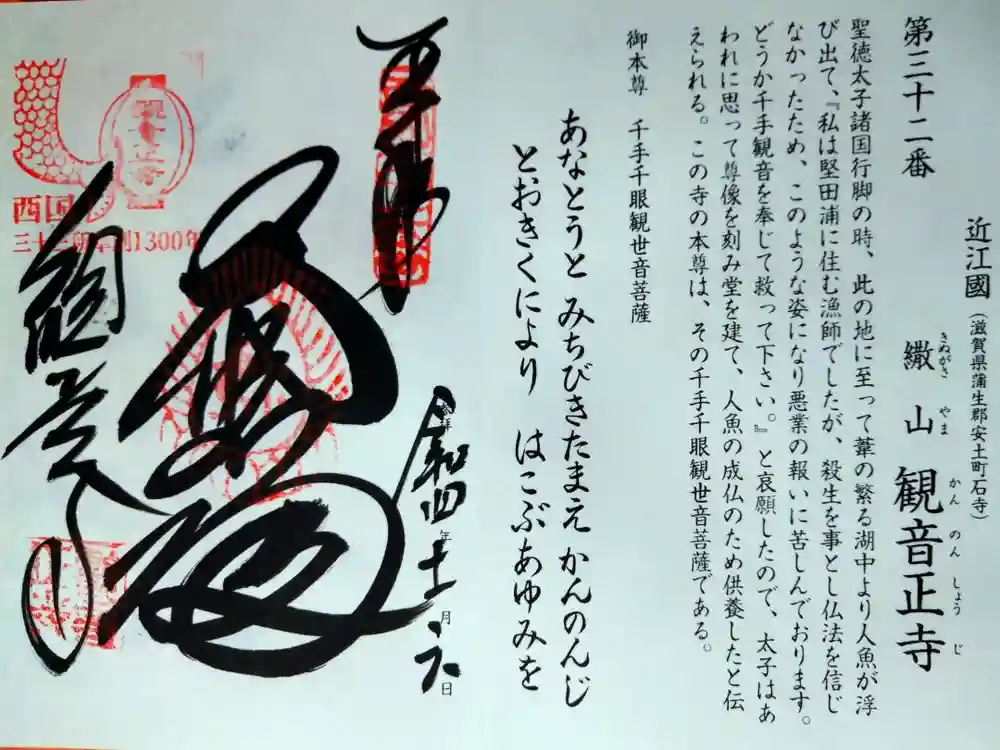 近江國(滋賀県蒲生郡安土町石寺)
第三十二番 繖山 観音正寺
きぬがさ やま かんのんしょうじ
聖徳太子諸国行脚の時、此の地に至って葦の繁る湖中より人魚が浮
び出て、『私は堅田浦に住む漁師でしたが、殺生を事とし仏法を信じ
なかったため、このような姿になり悪業の報いに苦しんでおります。
どうか千手観音を奉じて救って下さい。』と哀願したので、太子はあ
われに思って尊像を刻み堂を建て、人魚の成仏のため供養したと伝
えられる。この寺の本尊は、その千手千眼観世音菩薩である。
御本尊 千手千眼観世音菩薩
あなとうと みちびきたまえ かんのんじ
とおきくにより はこぶあゆみを
奉拝
令和四年十一月六日
大悲殿
観音正寺
西国
三十三所草創1300年